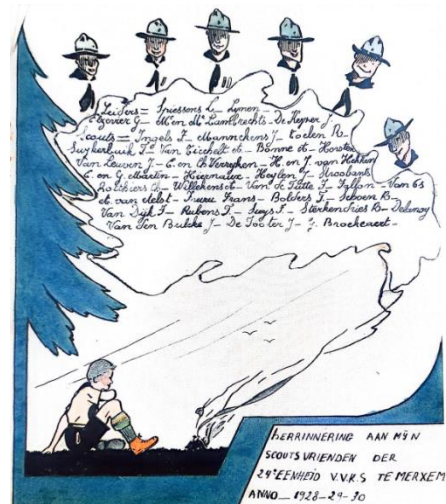 Leiders = Spiessens L - Lynen -
G - M en Mc Lambrechts - De Keyser J.
Scouts = Ingels F - Mannchens J - Coelen R -
Suykerbuik Fs Van Eichelt et - Bonne et - Horsten
Van Leuven J - C. en Ch Verreyken - H. en J. van Hekken
C. en G. Martin - Hiernaux - Heylen J - Straobants
Willekens et - Van de Putte F - Fallon - Van Gs
et. van Aelst - Frans - Bolders J - Schoen R -
Van Dijk F - Rubens F - Suys F - Sterkendries R - Delanoy
Van Den Bulcke J - De Tooter J -
HERRINNERING AAN MŸN
SCOUTSVRIENDEN DER
29e EENHEID V.V.K.S TE MERXEM
ANNO - 1928-29-30